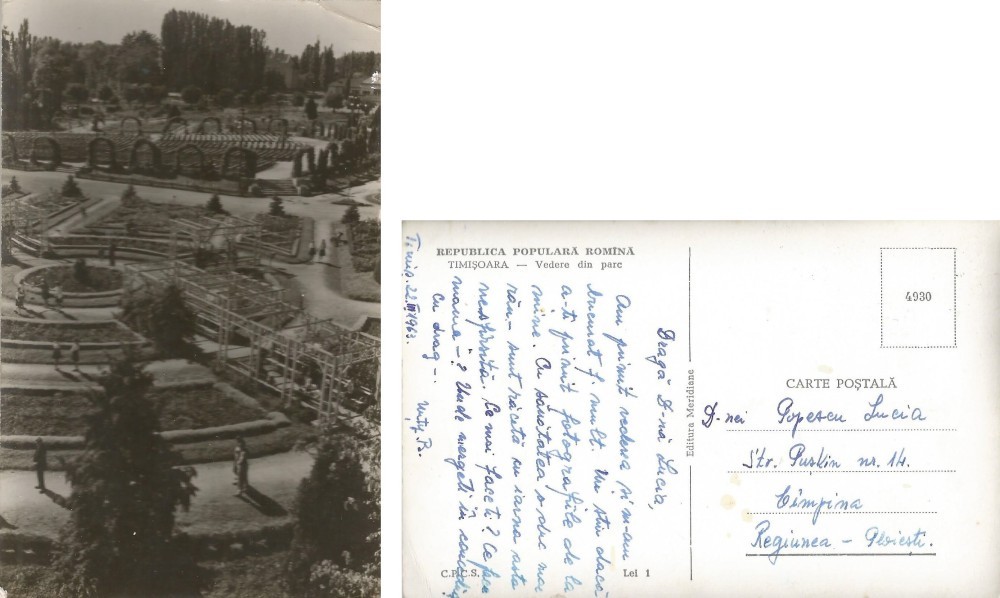 REPUBLICA POPULARĂ ROMÎNĂ
TIMIȘOARA — Vedere din parc
Timiș. 22.III 1963.
Dragă D-nă Lucia,
Am primit vederea și m-am
bucurat f. mult. Nu știu dacă
a-ți primit fotografiile de la
mine. Cu sănătatea o duc mai
rău - sunt răcită cu iarna asta
nesfîrșită. Ce mai faceți? Ce face
mama -? Unde mergeți în concediu
Cu drag -.
Editura Meridiane
C.P.C.S.
Lei 1
4930
CARTE POȘTALĂ
D-nei Popescu Lucia
Str. Pușkin nr. 14.
Cîmpina
Regiunea - Ploiești.